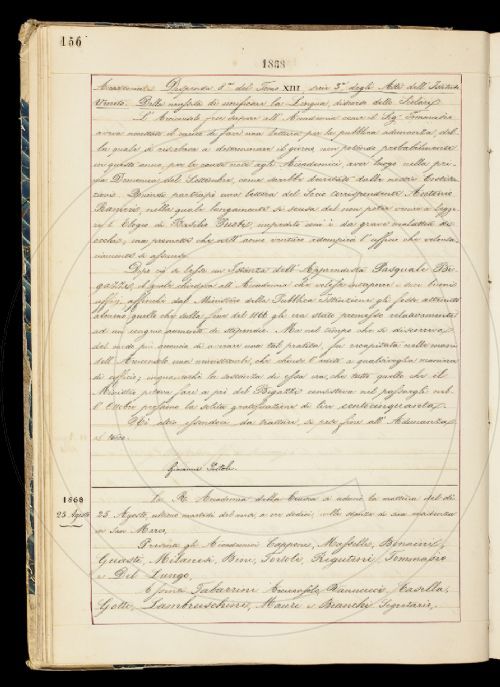 156
1868
Accademia. Dispensa 8.ª del Tomo XIII, serie 3ª degli Atti dell'Istituto
Veneto. Della unità di unificare la Lingua, discorso dello
L'Arciconsolo fece sapere all'Accademia come il Sig. Tommasèo
aveva accettato il carico di fare una lettura per la pubblica adunanza, del-
la quale si riserbava a determinare il giorno, non potendo probabilmente
in quest'anno, per le cause note agli Accademici, aver luogo nella pri-
ma Domenica del Settembre, come sarebbe decretato dalle nostre Costitu-
zioni. Quindi partecipò una lettera del Socio corrispondente Antonio
Ranieri, nella quale lungamente si scusa del non poter venire a legge-
re l'Elogio di Basilio Puoti, impedito com'è da grave malattia di
occhi; ma promette che nell'anno venturo adempirà l'ufficio che volentero-
samente si assunse.
Dopo ciò si lesse un'Istanza dell'Apprendista Pasquale Bi-
gazzi, il quale chiedeva all'Accademia che volesse interporre i suoi buoni
uffizj, affinchè dal Ministero della Pubblica Istruzione gli fosse attenuto
almeno quello che dalla fine del 1866 gli era stato promesso relativamente
ad un congruo aumento di stipendio. Ma nel tempo che si discorreva
del modo più acconcio di avviare una tal pratica, fu recapitata nelle mani
dell'Arciconsolo una ministeriale, che chiuse l'adito a qualsivoglia maniera
di ufficio; inquantochè la sostanza di essa era, che tutto quello che il
Ministro poteva fare a pro del Bigazzi consisteva nel pagargli nel-
l'Ottobre prossimo la solita gratificazione di Lire centocinquanta.
Nè altro essendovi da trattare, si pose fine all'Adunanza
a ore.
Giovanni Tortoli
1868
25 Agosto
La R. Accademia della Crusca si adunò la mattina del dì
25 Agosto, ultimo martedì del mese, a ore dodici, nelle stanze di sua residenza
in San Marco.
Presenti gli Accademici Capponi, Maffei, Bonaini,
Guasti, Milanesi, Bini, Tortoli, Rigutini, Tommasèo
e Del Lungo,
Assenti Tabarrini Arciconsolo, Vannucci, Casella,
Gotti, Lambruschini, Mauri e Bianchi Segretario,